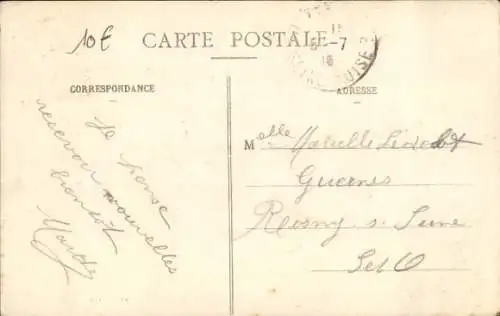 10€
CARTE POSTALE
15
5-7
18
CORRESPONDANCE
ADRESSE
Je pense
recevoir nouvelles
bientôt
Melle Marcelle
Guernes
Rosny s. Seine
Set O